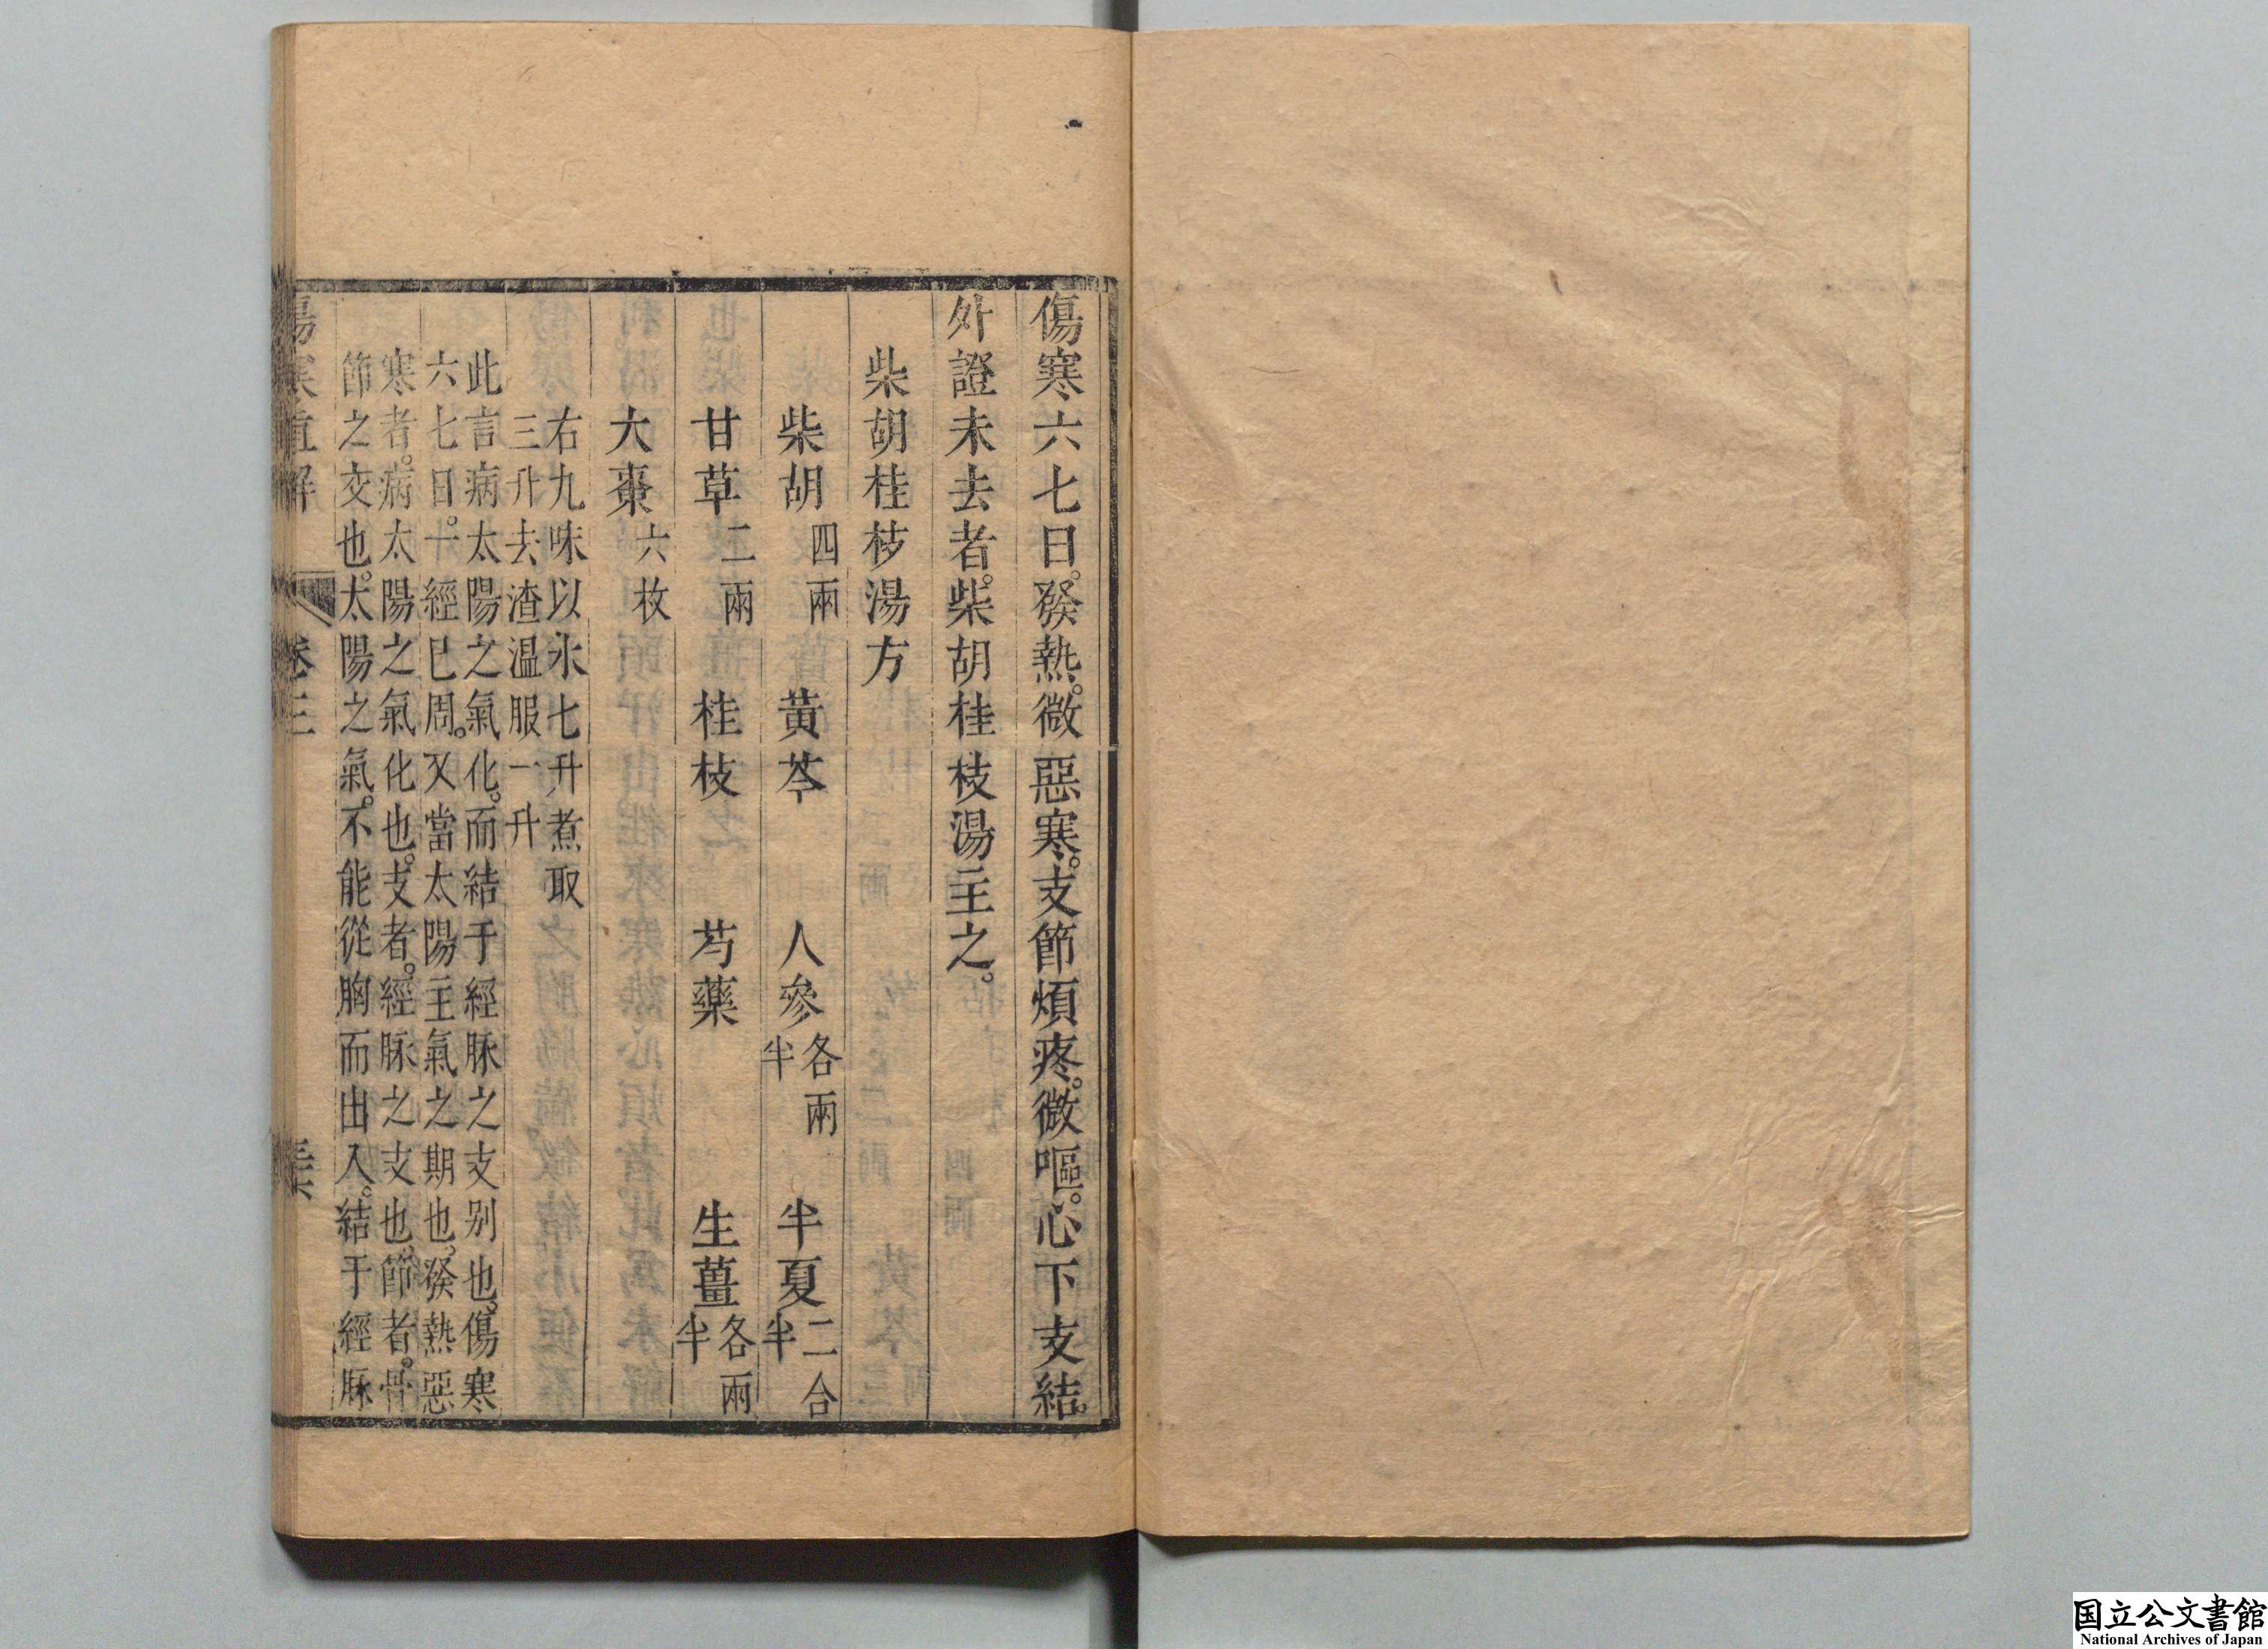 傷寒六七日。發熱。微惡寒。支節煩疼。微嘔。心下支結。
外證未去者。柴胡桂枝湯主之。
柴胡桂枝湯方
柴胡四兩　黃芩　人參各兩半　半夏二合半
甘草二兩　桂枝　芍藥　生薑各兩半
大棗六枚
右九味以水七升煮取
三升去渣溫服一升
此言病太陽之氣化。而結于經脉之支别也。傷寒
六七日。一經已周。又當太陽主氣之期也。發熱惡
寒者。病太陽之氣化也。支者。經脉之支也。節者。骨
節之交也。太陽之氣。不能從胸而出入。結于經脉
傷寒直解　卷三
国立公文書館
National Archives of Japan